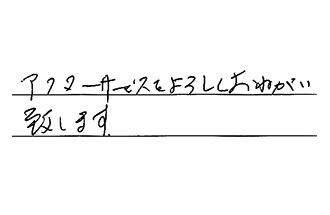 アフターサービスをよろしくおねがい
致します